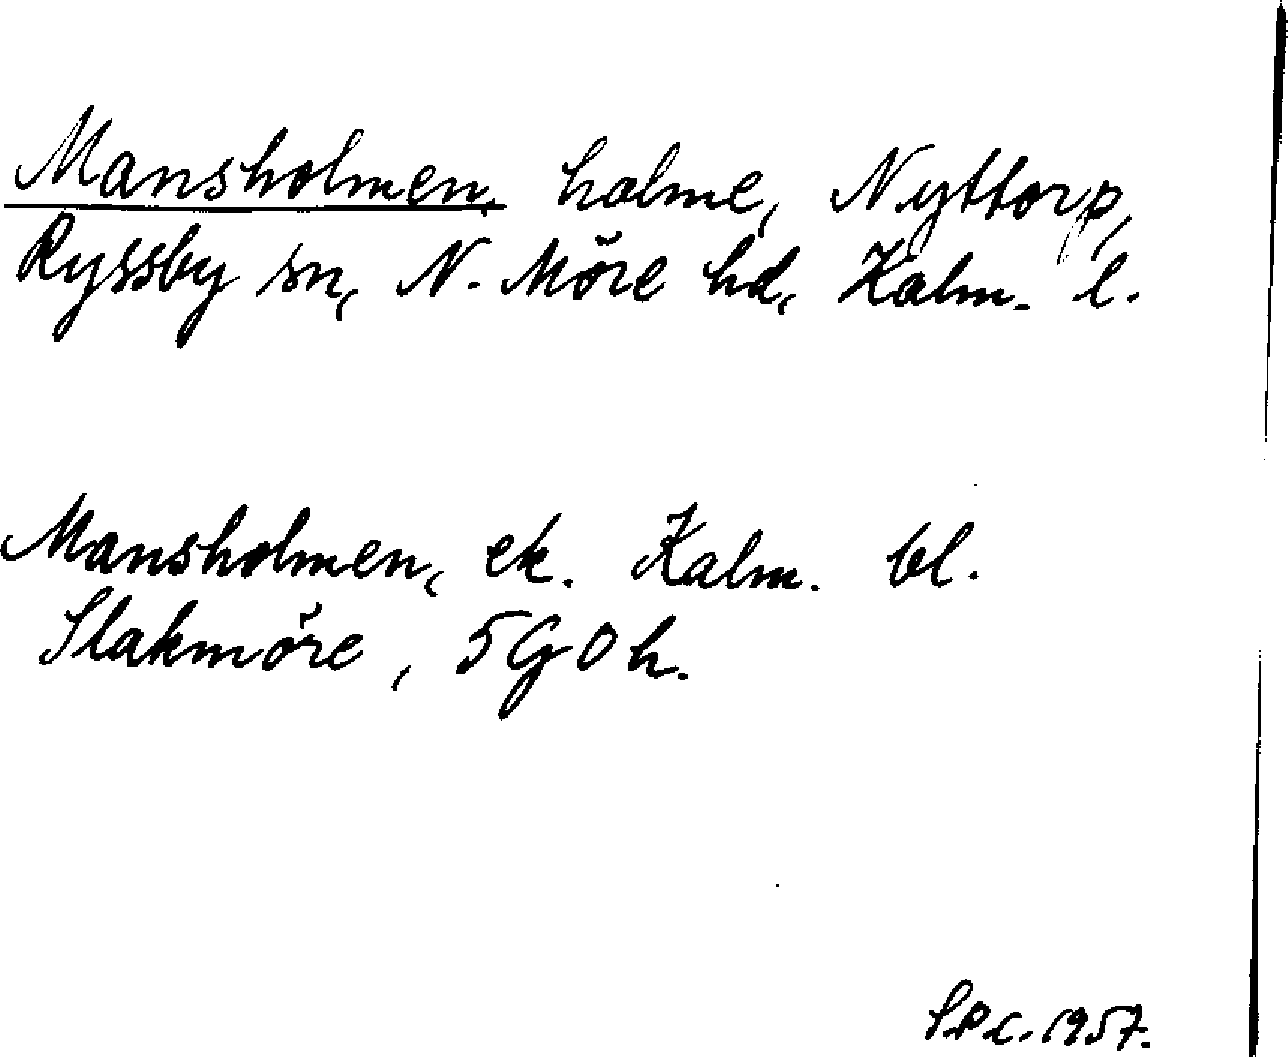 Mansholmen, holme, Nyttorp,
Ryssby sn, N. Möre hd, Kalm. l.
Mansholmen, ek. Kalm. bl.
Slakmöre, 5G0h.
S.P.C. 1957.